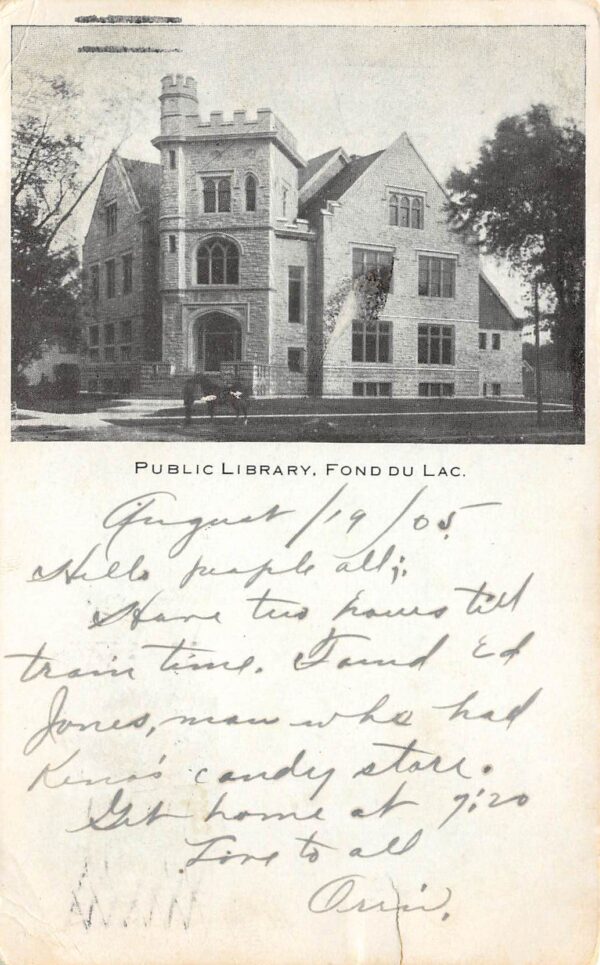 PUBLIC LIBRARY, FOND DU LAC.
August /19/05
Hello people all;
Have two hours till
train time. Found Ed
Jones, man who had
candy store.
Get home at 7:20
Love to all